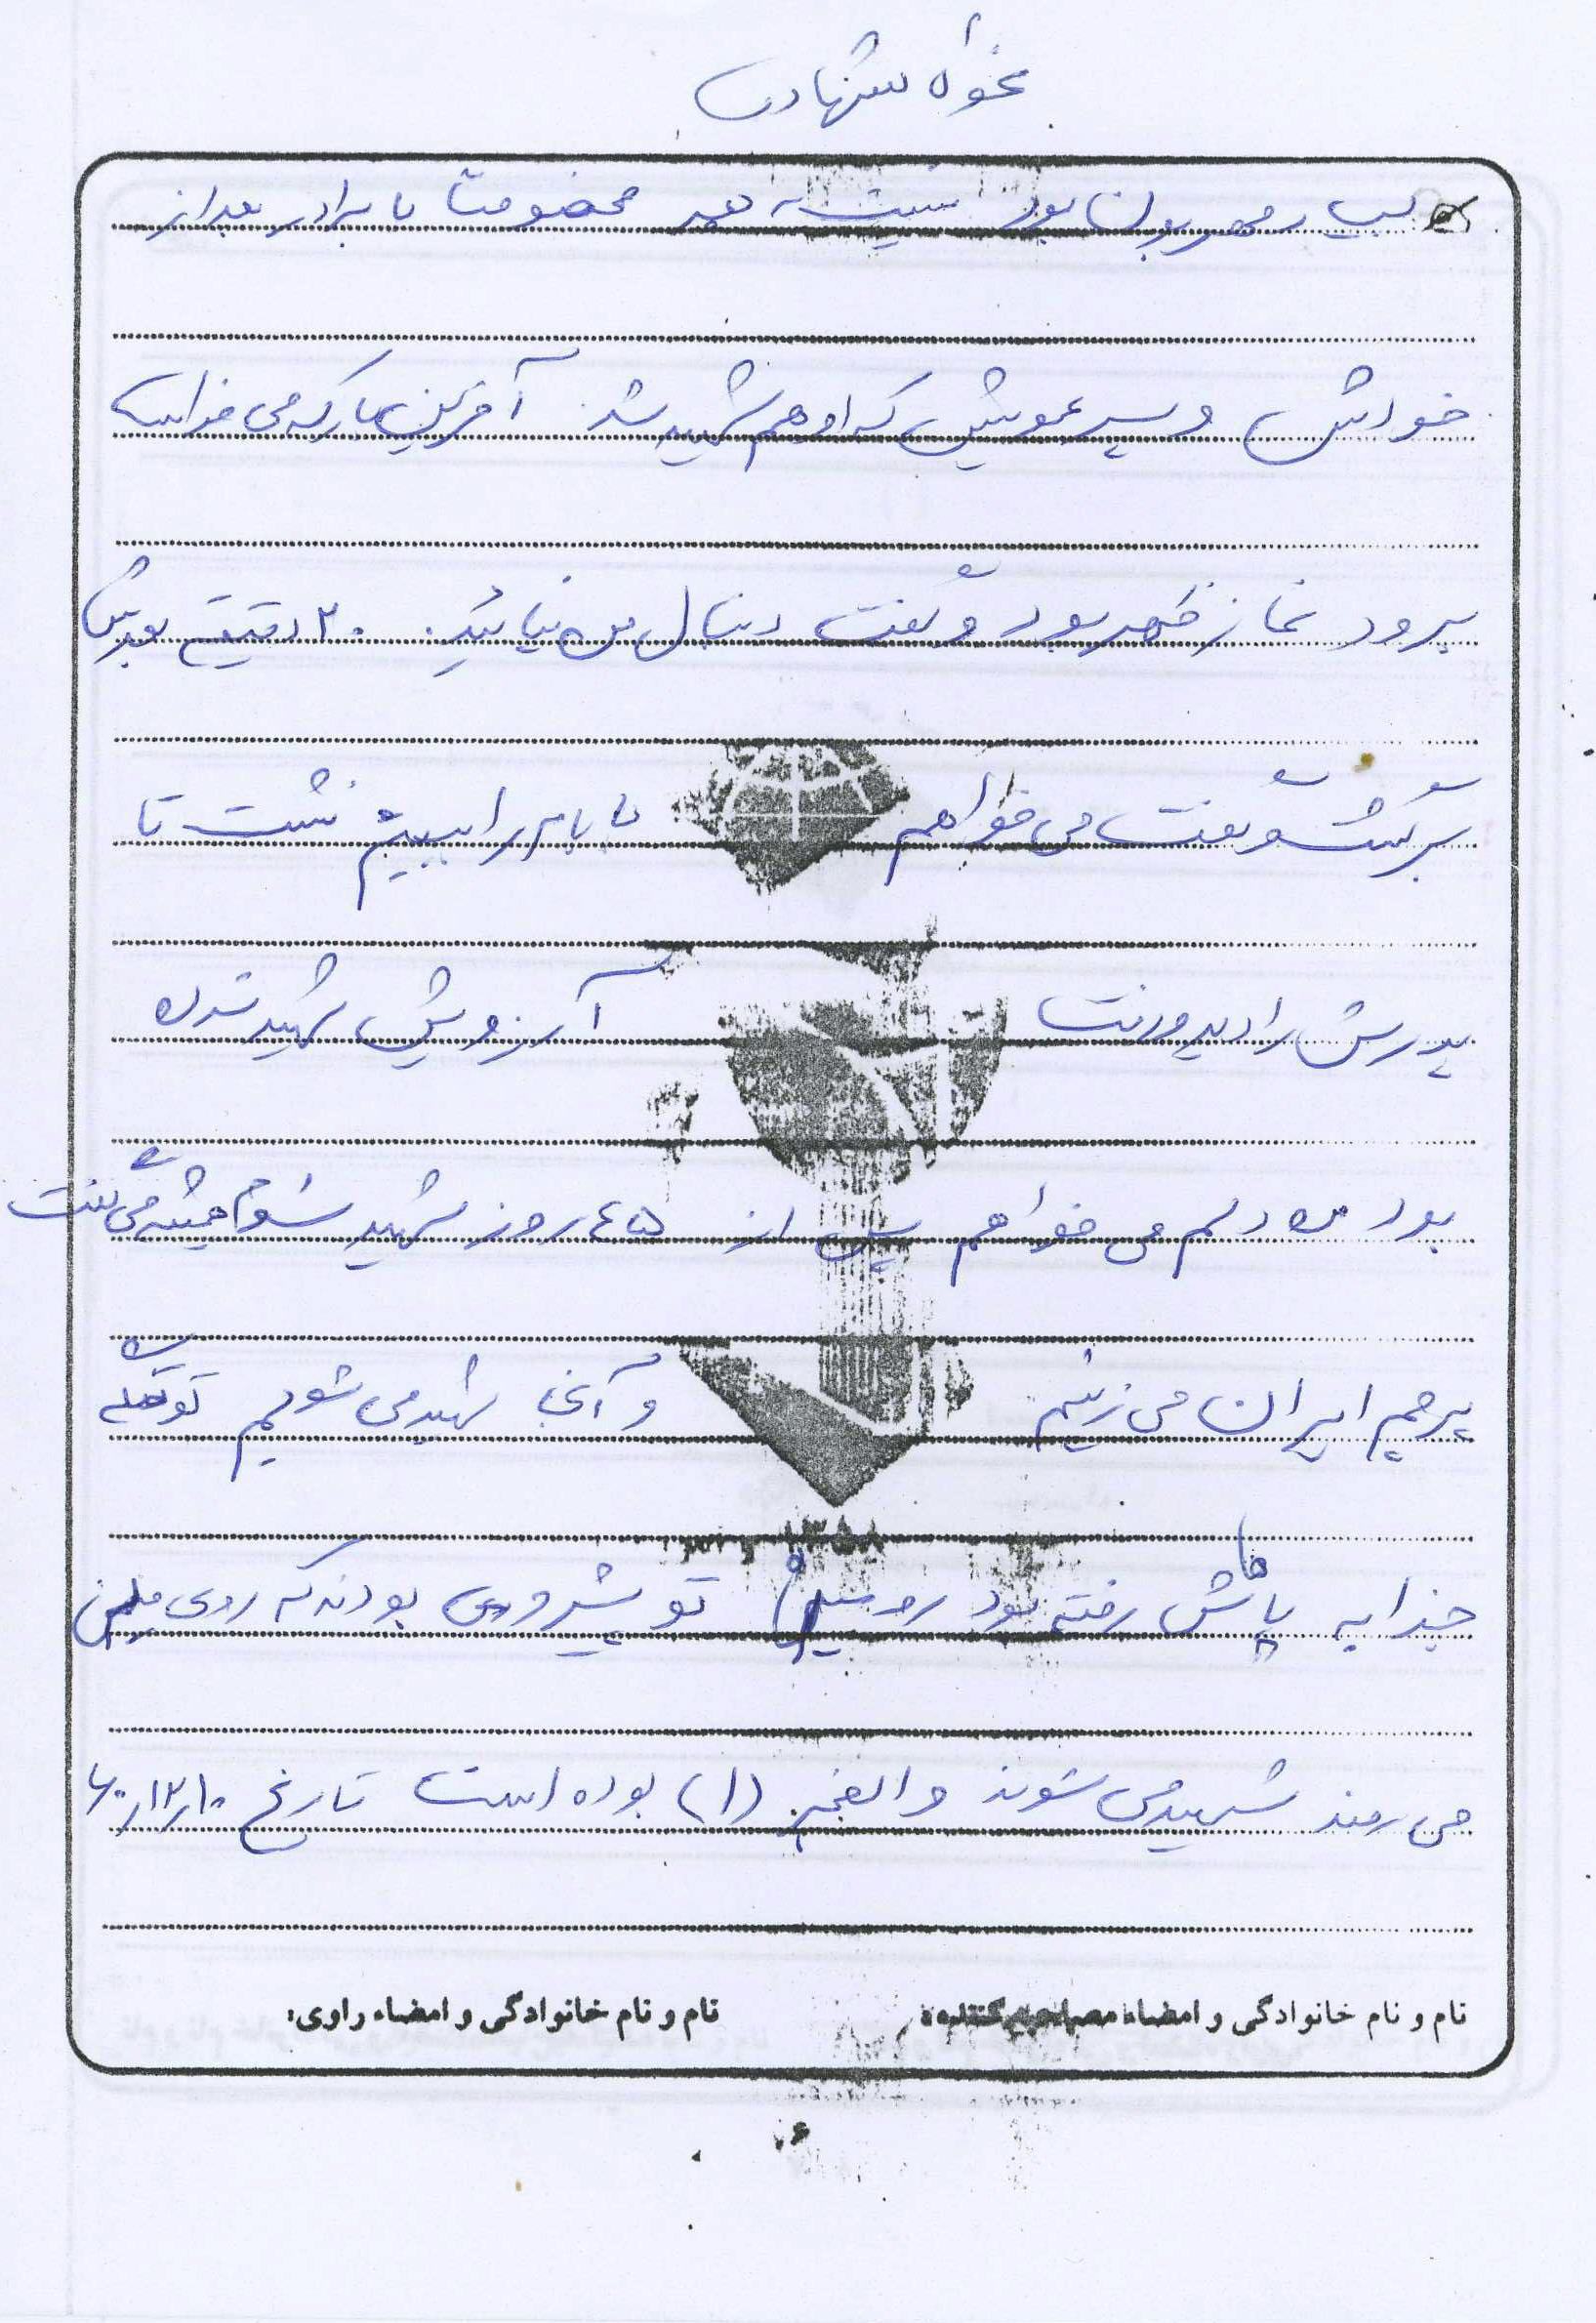 نحوه شهادت
بسیار مهربان بود نسبت به همه مخصوصاً با برادر بعد از
خودش و پسر عمویش که او هم شهید شد. آخرین بار که می خواست
برود نماز ظهر بود و گفت دنبال من نیائید. ۲۰ دقیقه بعدش
برگشت و گفت می خواهم بابام را ببینم نشست تا
پدرش را دید و رفت آرزویش شهید شدن
بود من دلم می خواهم پس از ۴۵ روز شهید شوم همیشه می گفت
پرچم ایران می زنیم و آنجا شهید می شویم تو تنگه
چذابه پاهاش رفته بود رو سیم تو پیشروی بودند که روی مین
می روند شهید می شوند والفجر (۱) بوده است تاریخ ۶۰/۱۲/۱۰
نام و نام خانوادگی و امضاء مصاحبه کننده: نام و نام خانوادگی و امضاء راوی: